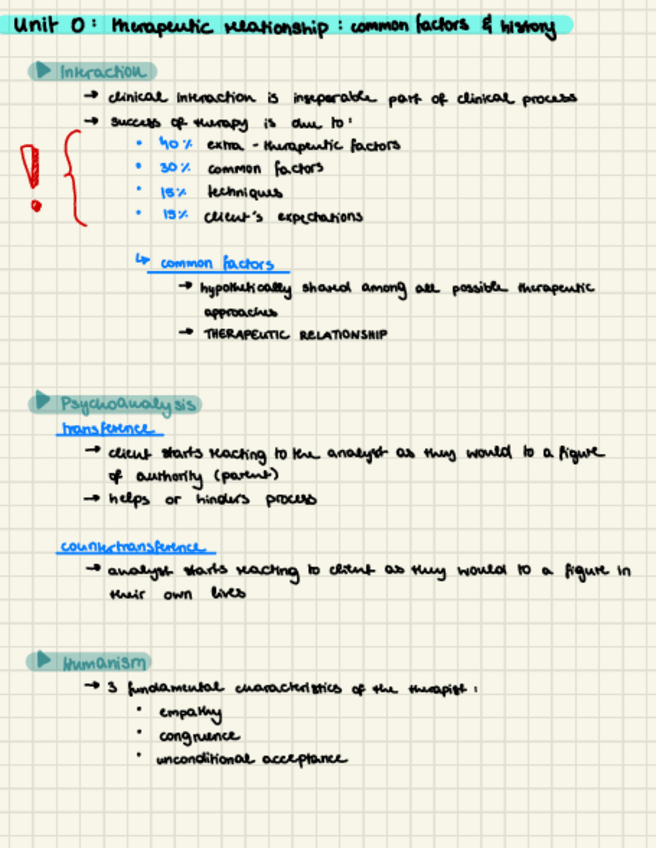 Unit 0: therapeutic relationship: common factors & history
▶ Interaction
→ clinical interaction is inseperable part of clinical process
→ success of therapy is due to:
• 40% extra-therapeutic factors
• 30% common factors
• 15% techniques
• 15% client's expectations
!
↳ common factors
→ hypothetically shared among all possible therapeutic
approaches
→ THERAPEUTIC RELATIONSHIP
▶ Psychoanalysis
transference
→ client starts reacting to the analyst as they would to a figure
of authority (parent)
→ helps or hinders process
countertransference
→ analyst starts reacting to client as they would to a figure in
their own lives
▶ Humanism
→ 3 fundamental characteristics of the therapist:
• empathy
• congruence
• unconditional acceptance